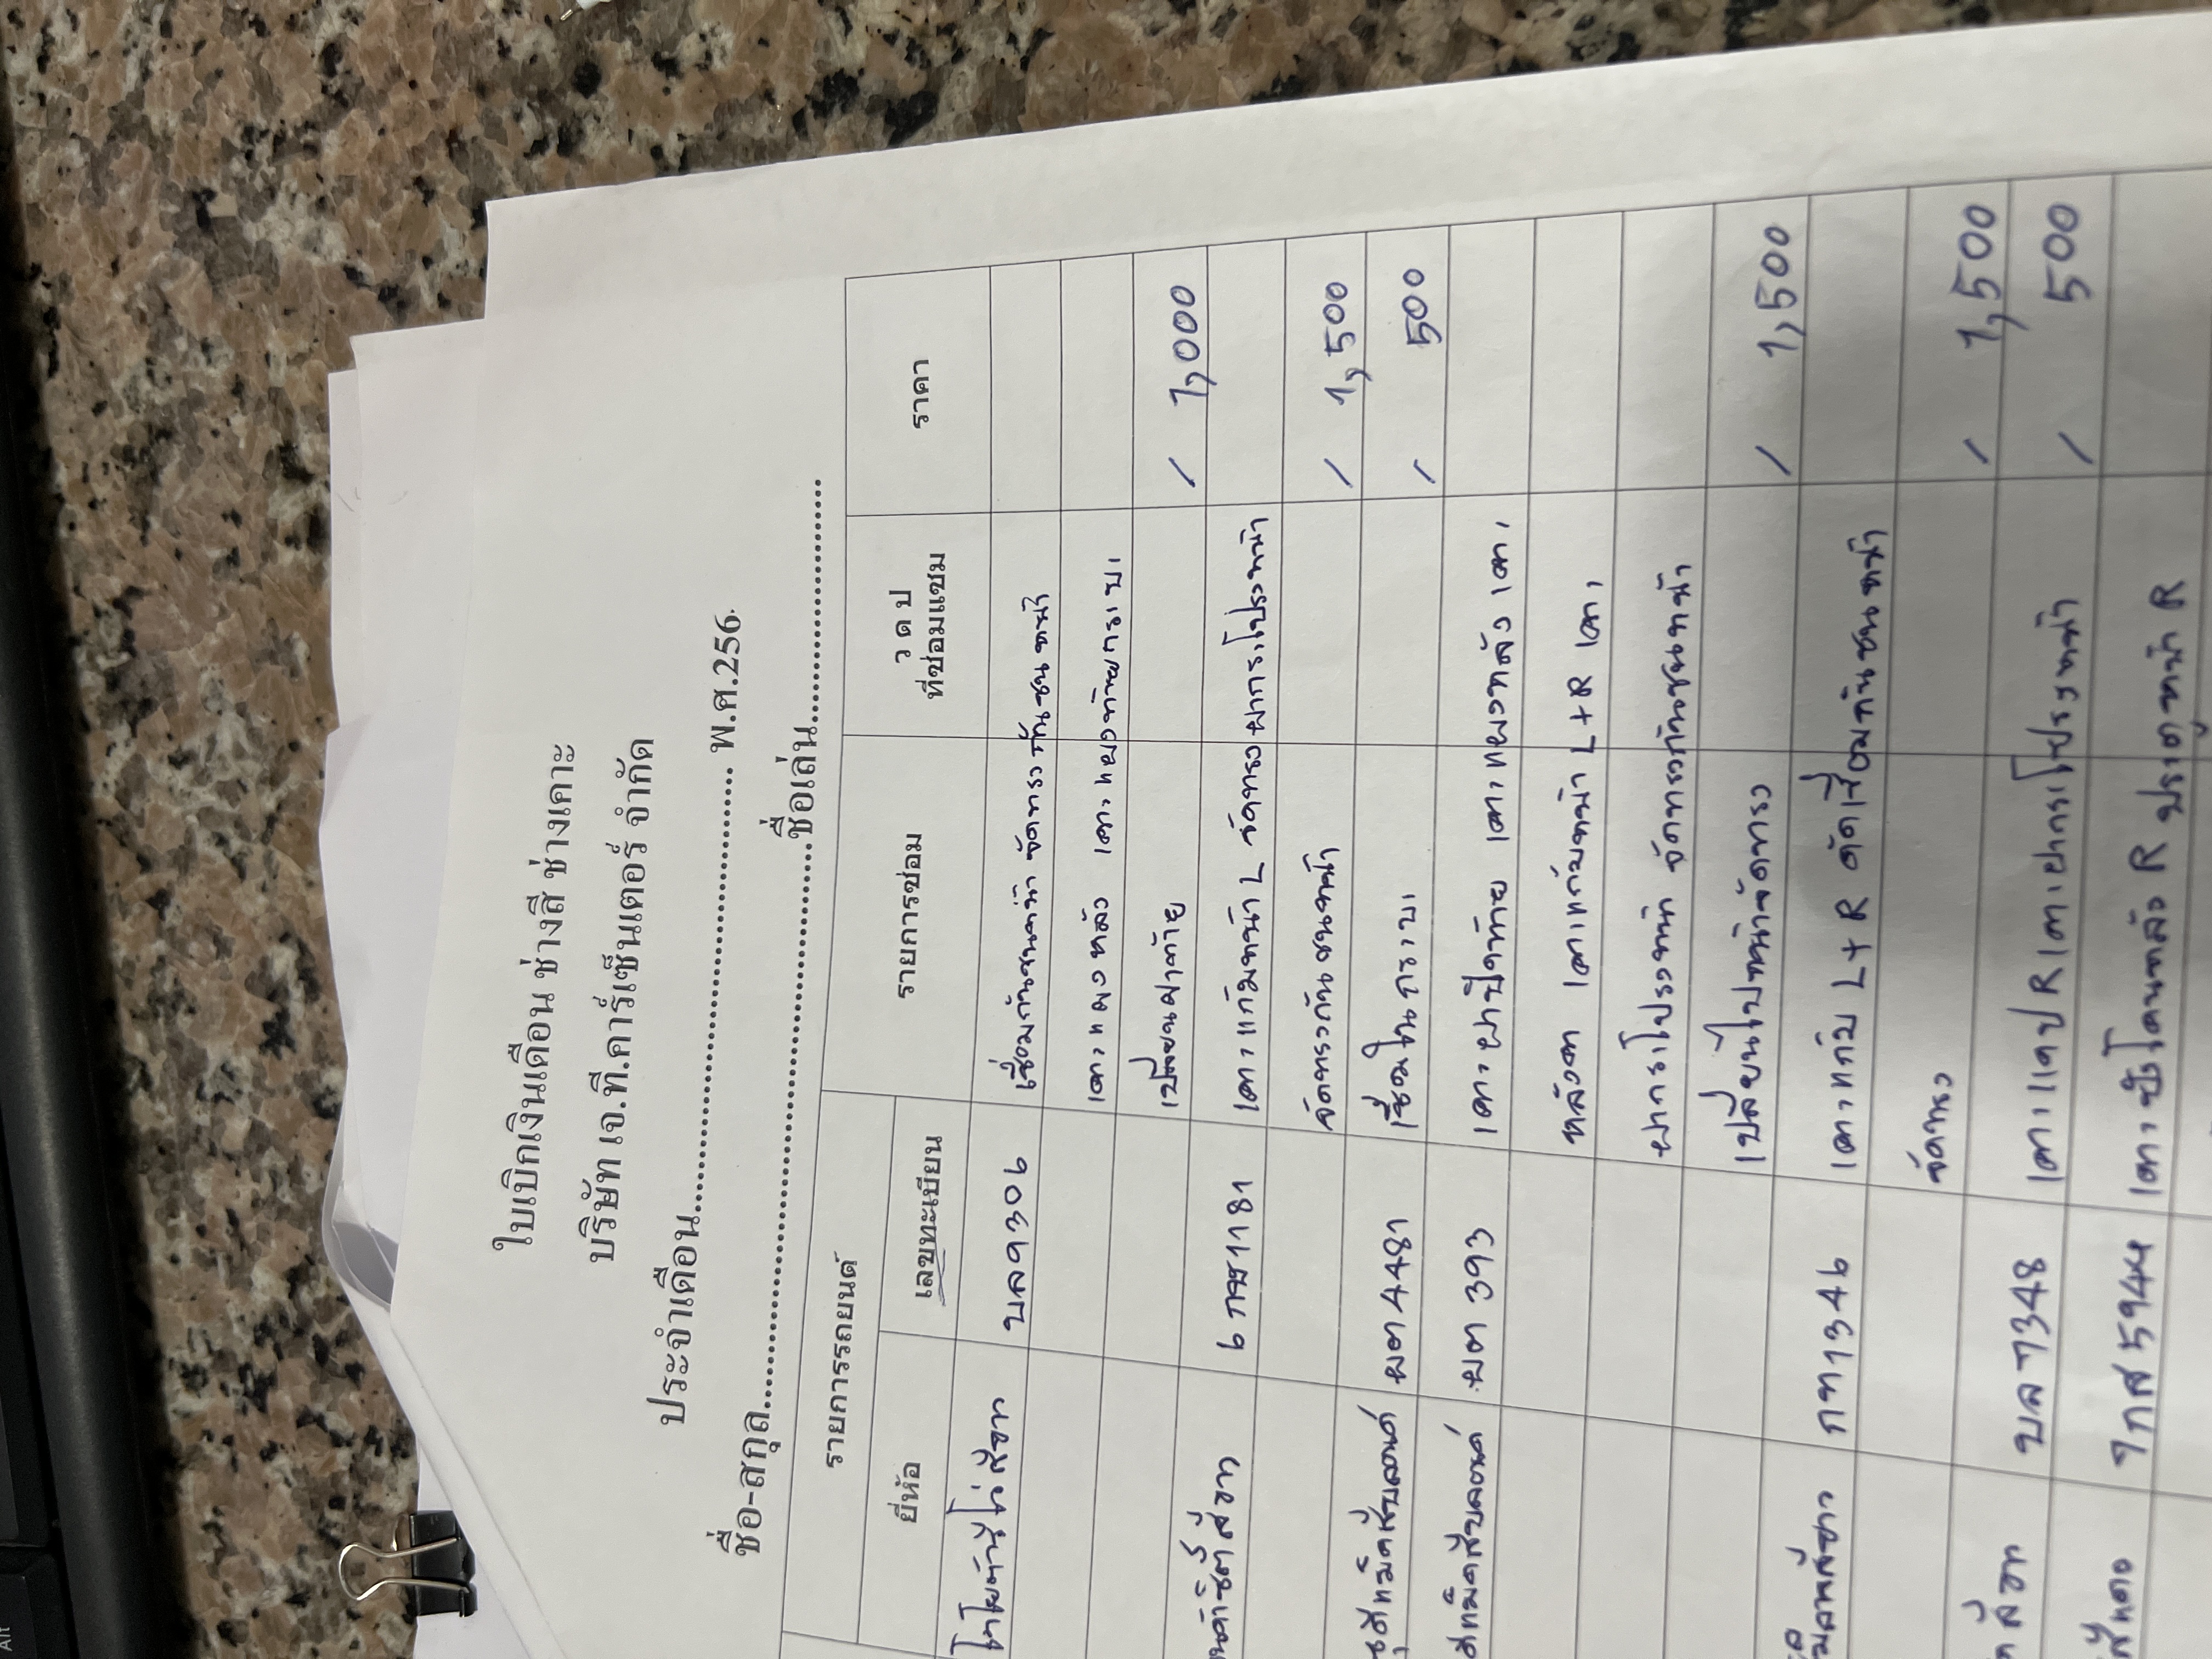 ใบเบิกเงินเดือน ช่างสี ช่างเคาะ
บริษัท เจ.ที.คาร์เซ็นเตอร์ จำกัด
ประจำเดือน.................................................. พ.ศ.256
ชื่อ-สกุล..................................................ชื่อเล่น..............................
รายการรถยนต์ รายการซ่อม ว ด ป ที่ซ่อมแซม ราคา
ยี่ห้อ เลขทะเบียน
บล9306 เชื่อมกันชนหน้า จัดทรงกันชนหน้า
เคาะแผงหลัง เคาะแผงท้ายกระบะ
เปลี่ยนฝาท้าย / 1,000
6 กช1181 เคาะแก้มหน้า L จัดทรงฝากระโปรงหน้า
จัดทรงกันชนหน้า / 1,500
ผต 4481 เชื่อมในกระบะ / 500
ผต 393 เคาะฝาปิดท้าย เคาะแผงหลัง เคาะ
หลังคา เคาะแก้มหน้า L+R เคาะ
ฝากระโปรงหน้า จัดทรงกันชนหน้า
เปลี่ยนโปหน้าจัดทรง / 1,500
กท1346 เคาะแก้ม L+R ตัดเชื่อมกันชนหน้า
จัดทรง / 1,500
บล 7348 เคาะแคป R เคาะฝากระโปรงหน้า / 500
1กส 5944 เคาะบังโคลนหลัง R ประตูหน้า R